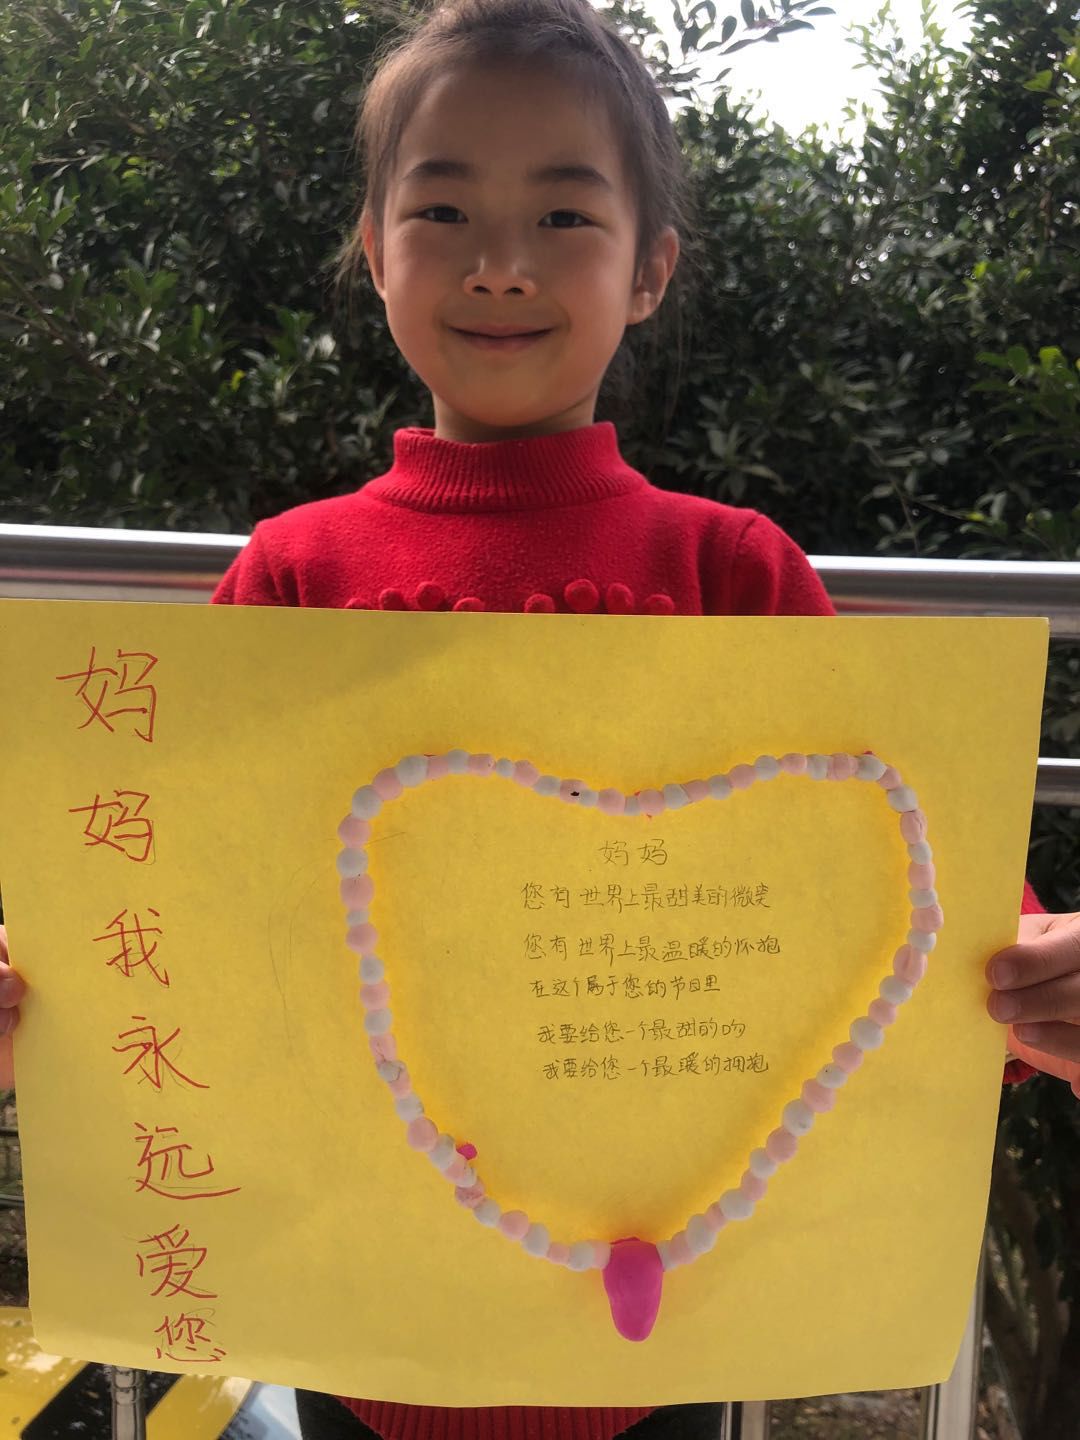 妈妈我永远爱您
妈妈
您有世界上最甜美的微笑
您有世界上最温暖的怀抱
在这个属于您的节日里
我要给您一个最甜的吻
我要给您一个最暖的拥抱